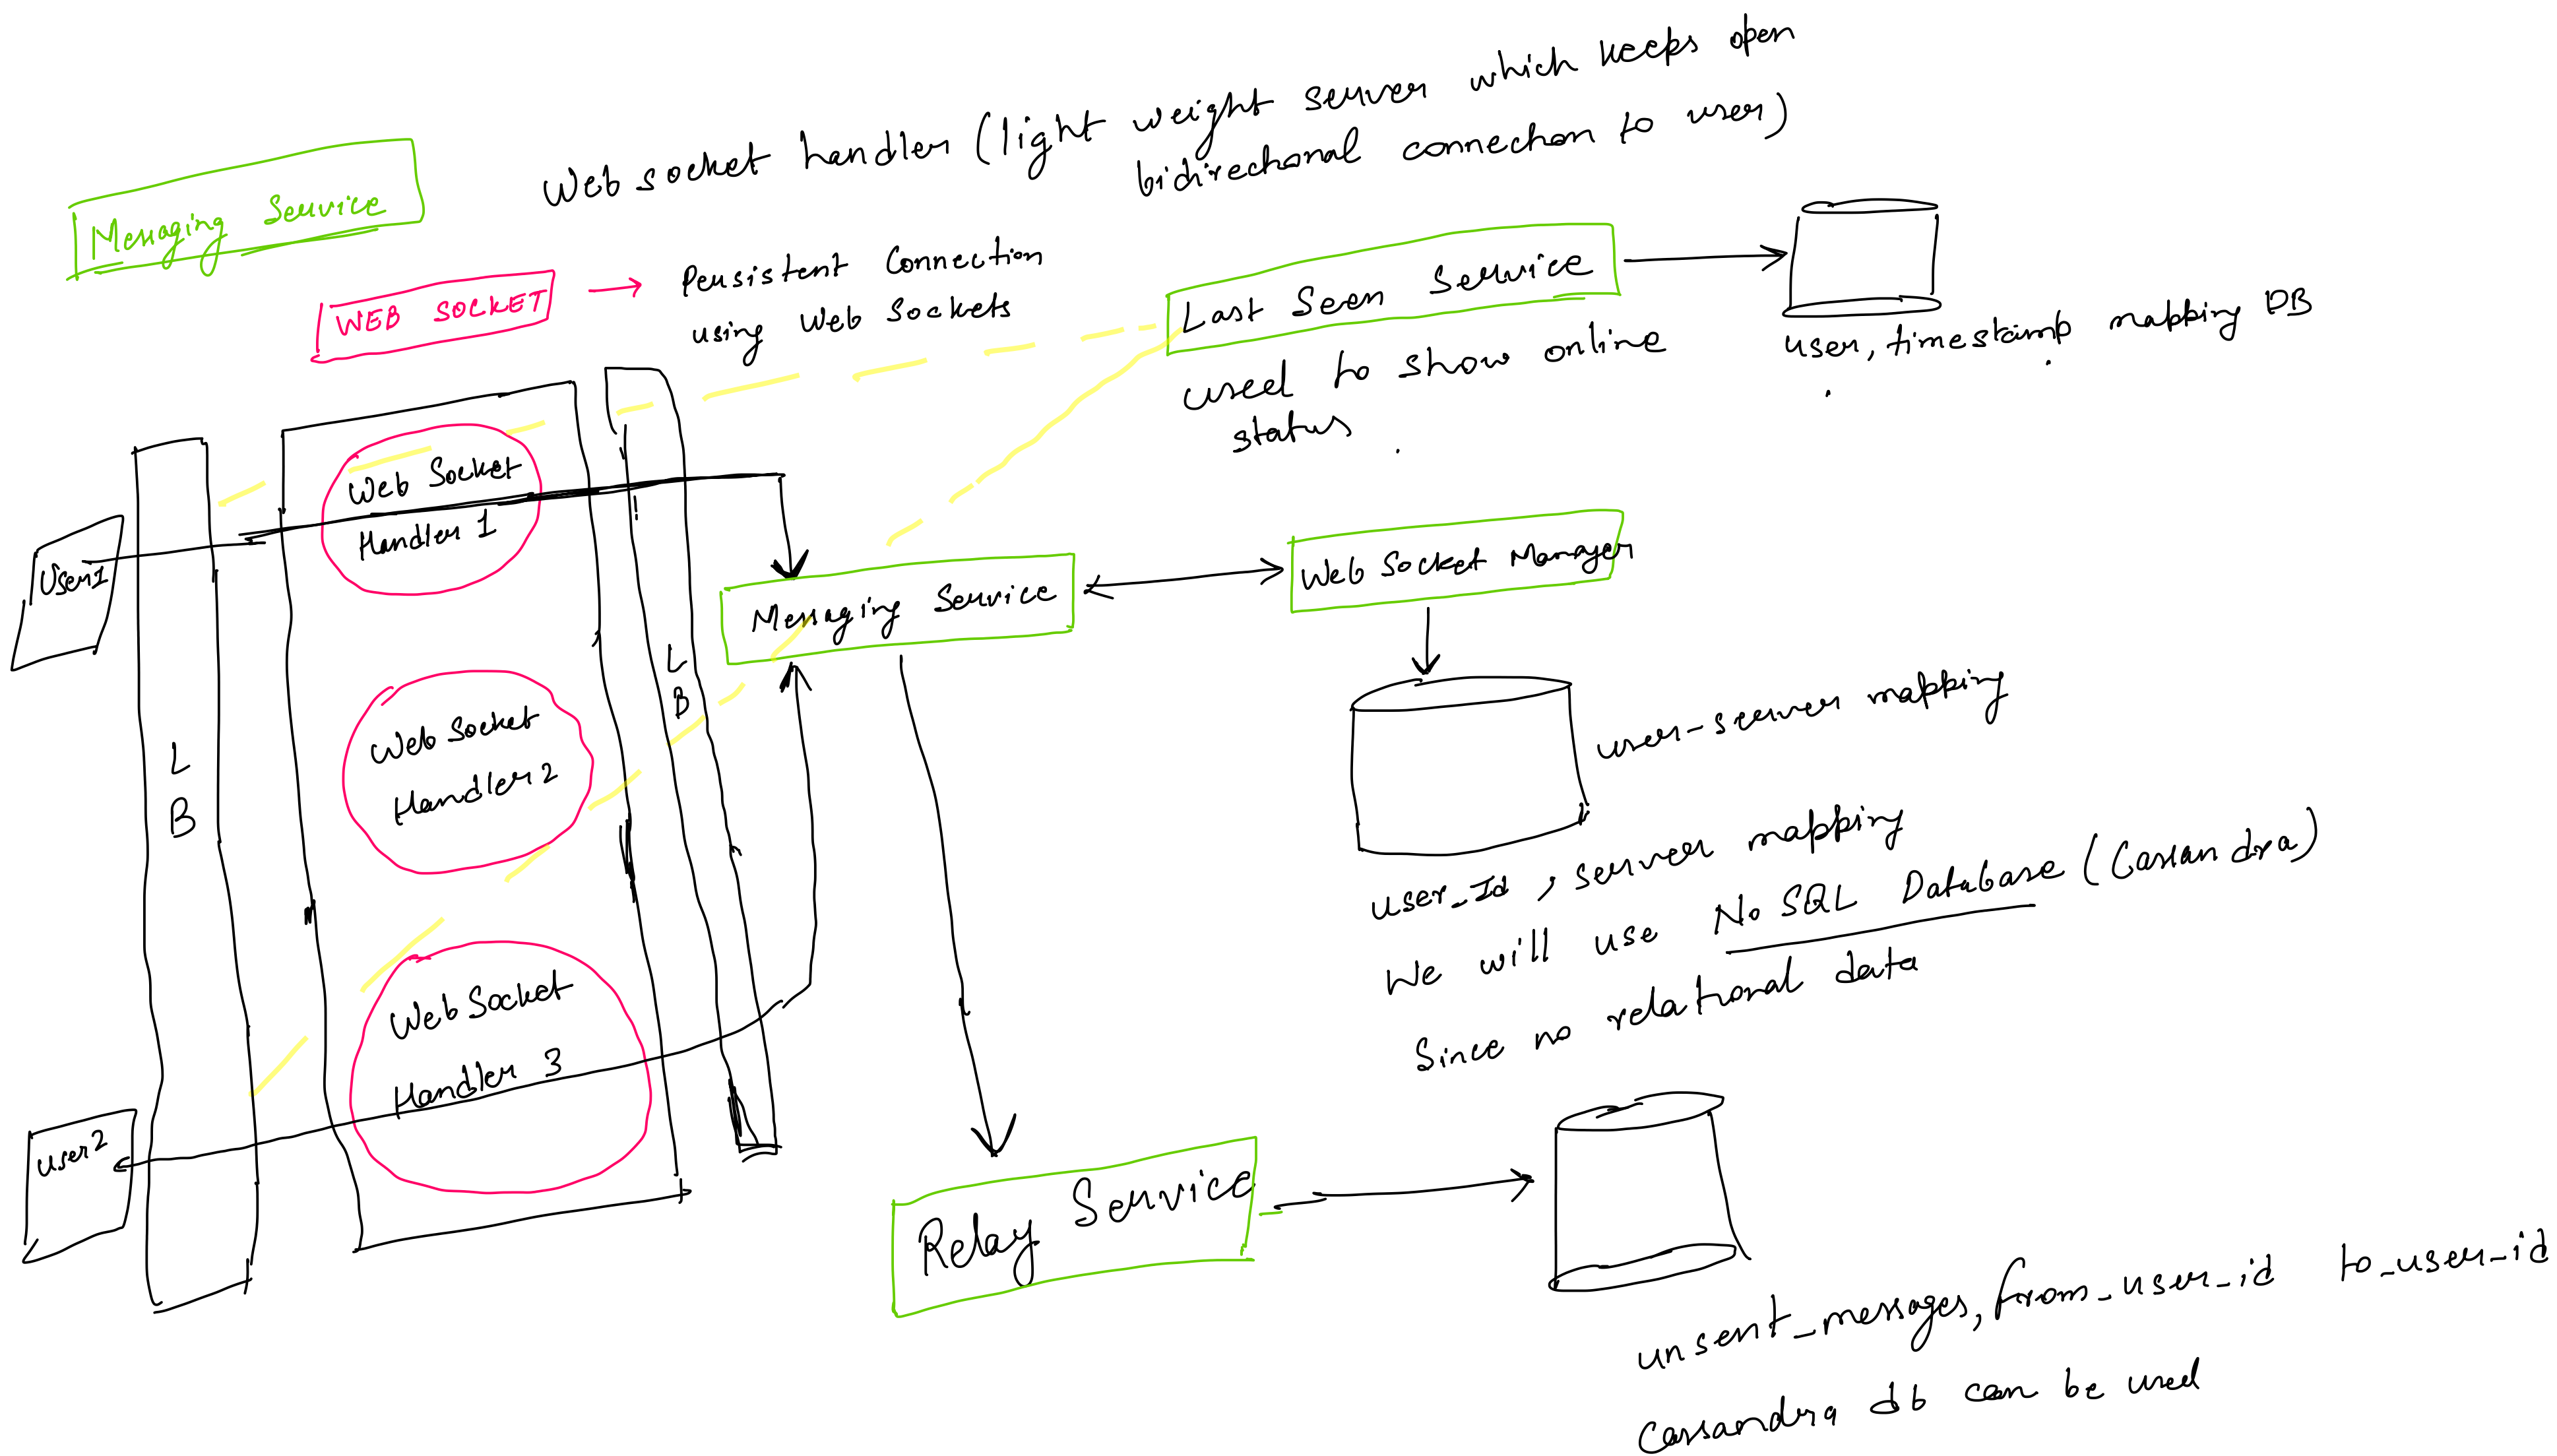 Web socket handler (light weight server which keeps open
bidirectional connection to user)
Messaging Service
WEB SOCKET
Persistent Connection
using Web Sockets
Last Seen Service
used to show online
status
user, timestamp mapping DB
User1
L
B
Web Socket
Handler 1
Web Socket
Handler 2
Web Socket
Handler 3
user2
L
B
Messaging Service
Web Socket Manager
user-server mapping
user_Id, server mapping
We will use No SQL Database (Cassandra)
Since no relational data
Relay Service
unsent_messages, from_user_id to_user_id
Cassandra db can be used